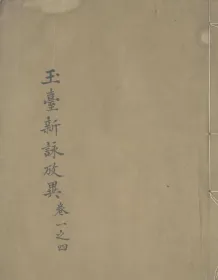 玉臺新詠攷異 卷一之四